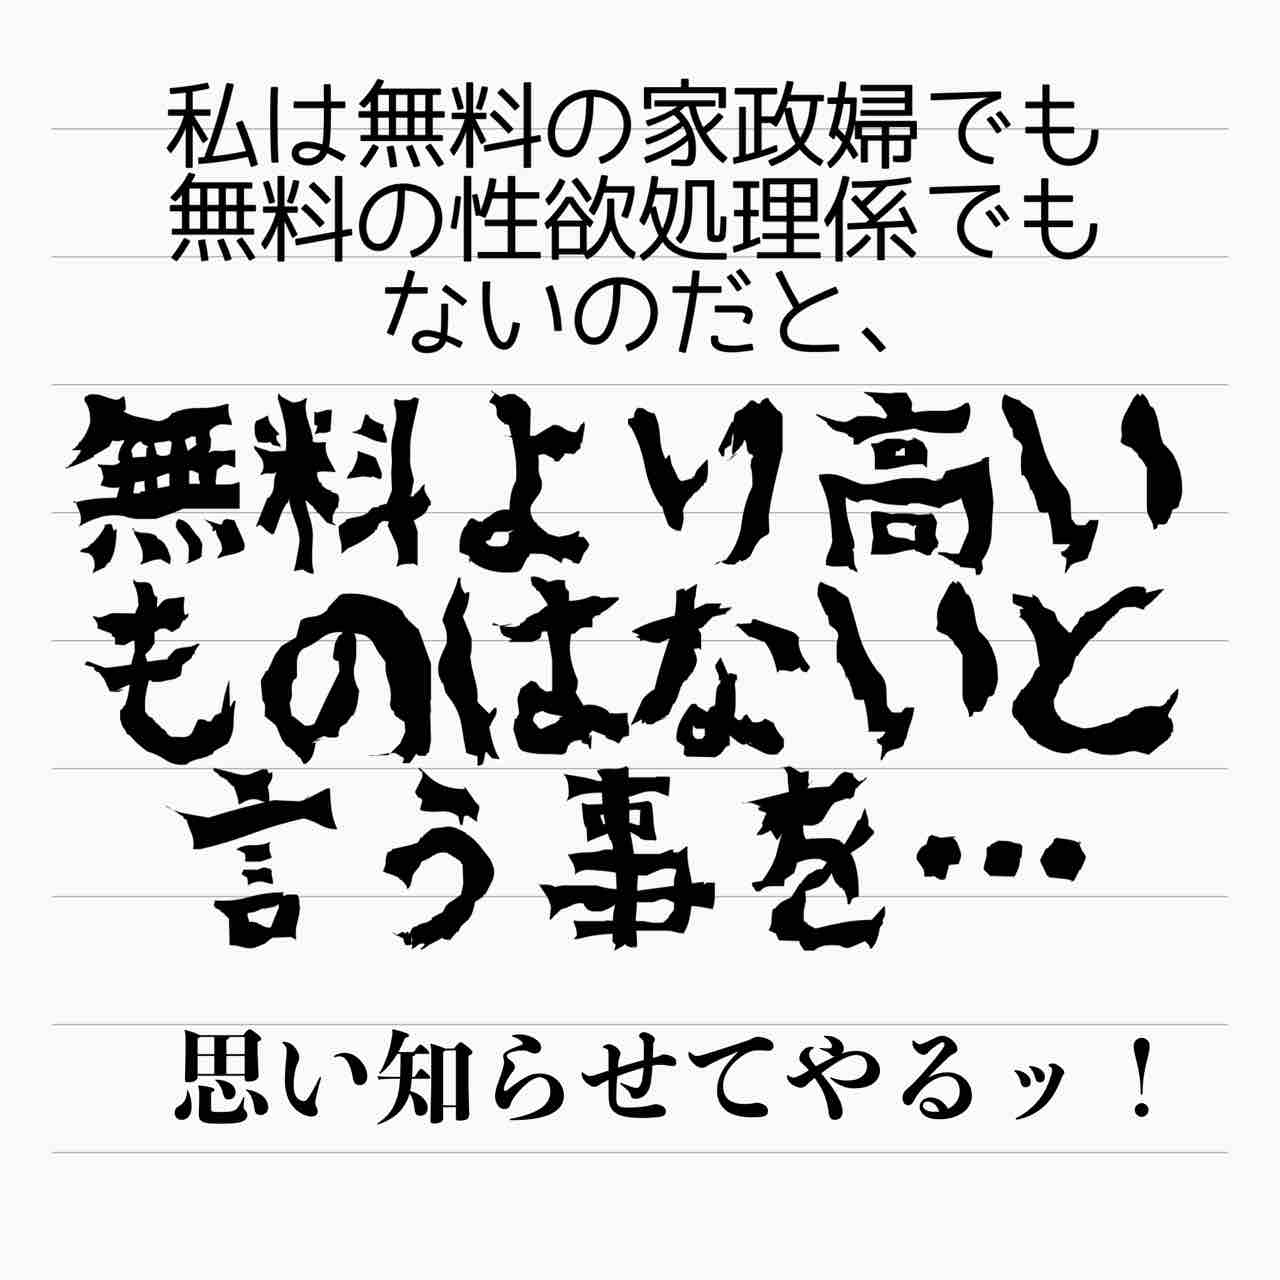 私は無料の家政婦でも
無料の性欲処理係でも
ないのだと、
無料より高い
ものはないと
言う事を…
思い知らせてやるッ！